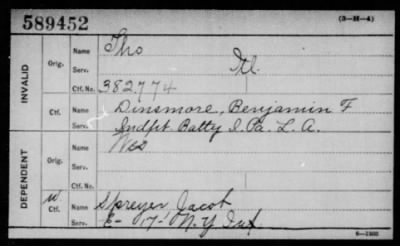 589452
(3-H-4)
INVALID
Orig.
Name
Tho
Serv.
Ctf. No.
382,774
Ctf.
Name
Dinsmore, Benjamin F
Serv.
Indpt. Batty I. Pa. L. A.
DEPENDENT
Orig.
Name
Serv.
W.
Ctf.
Name
Spreyer Jacob
Serv.
E - 17 - N.Y. Inf